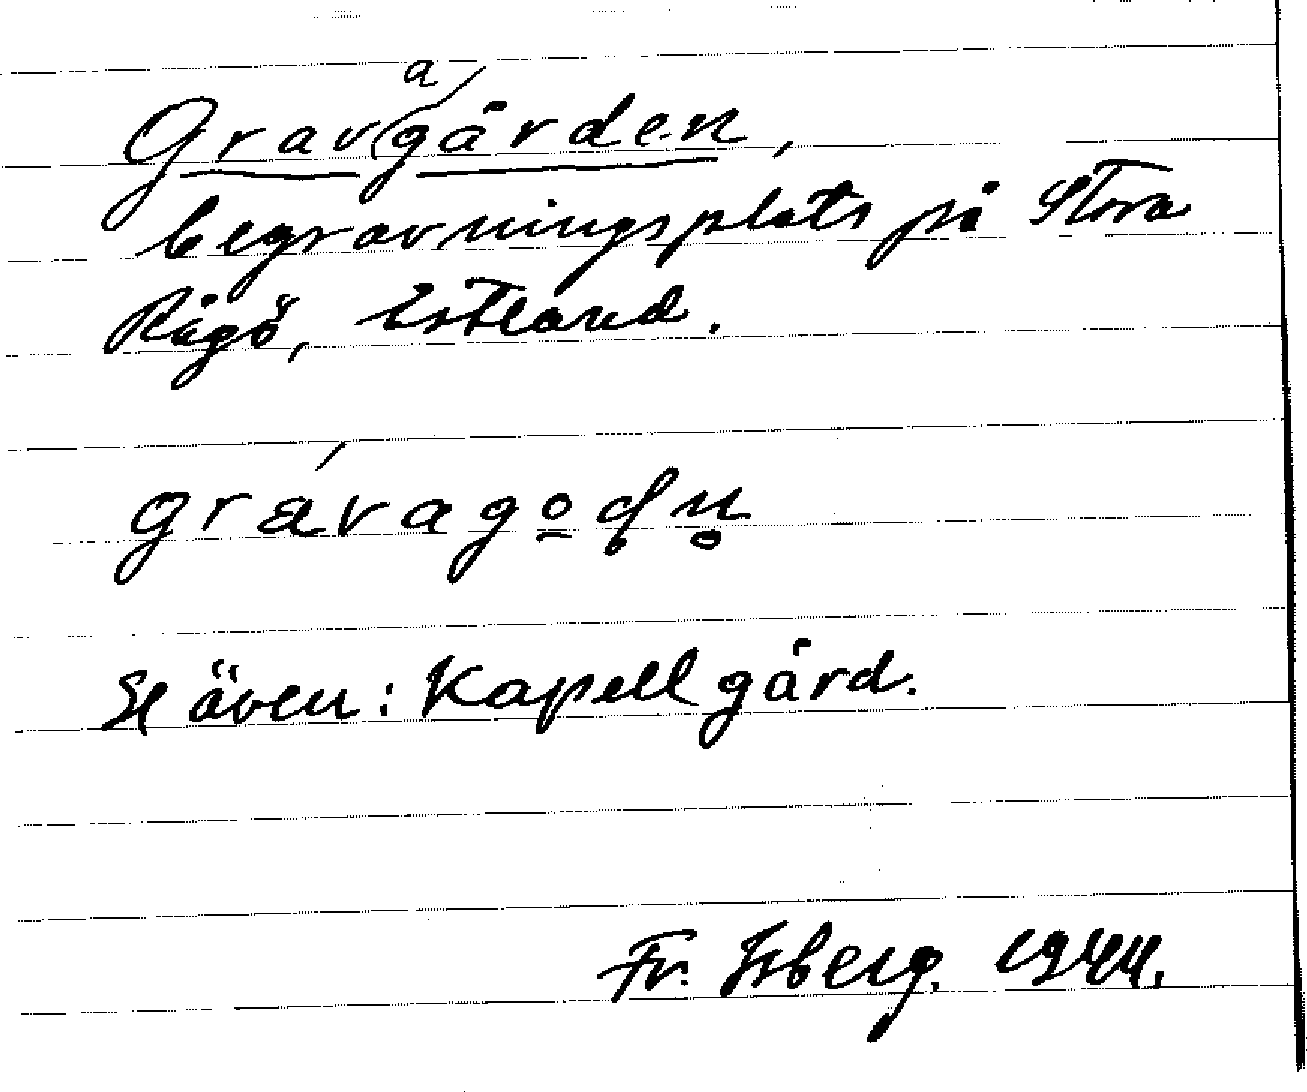 Gravagården,
begravningsplats på Stora
Rågö, Estland.
grávago̲ḍn̥
Se även: Kapellgård.
Fr. Isberg. 1944.